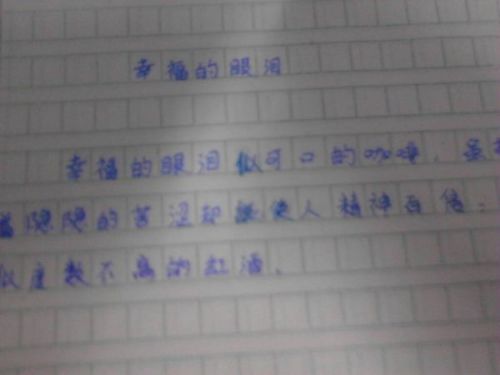 幸福的眼泪
幸福的眼泪似可口的咖啡，虽
隐隐的苦涩却能使人精神百倍；
似度数不高的红酒，